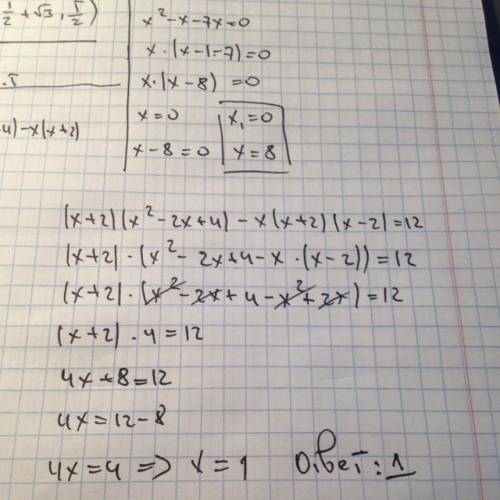 1/2 + √3, π/2)
x² - x - 7x = 0
x · (x - 1 - 7) = 0
x · (x - 8) = 0
4) - x(x+2)
x = 0 x₁ = 0
x - 8 = 0 x = 8
(x+2)(x² - 2x + 4) - x(x+2)(x-2) = 12
(x+2) · (x² - 2x + 4 - x · (x-2)) = 12
(x+2) · (x² - 2x + 4 - x² + 2x) = 12
(x+2) · 4 = 12
4x + 8 = 12
4x = 12 - 8
4x = 4 => x = 1 Ответ: 1